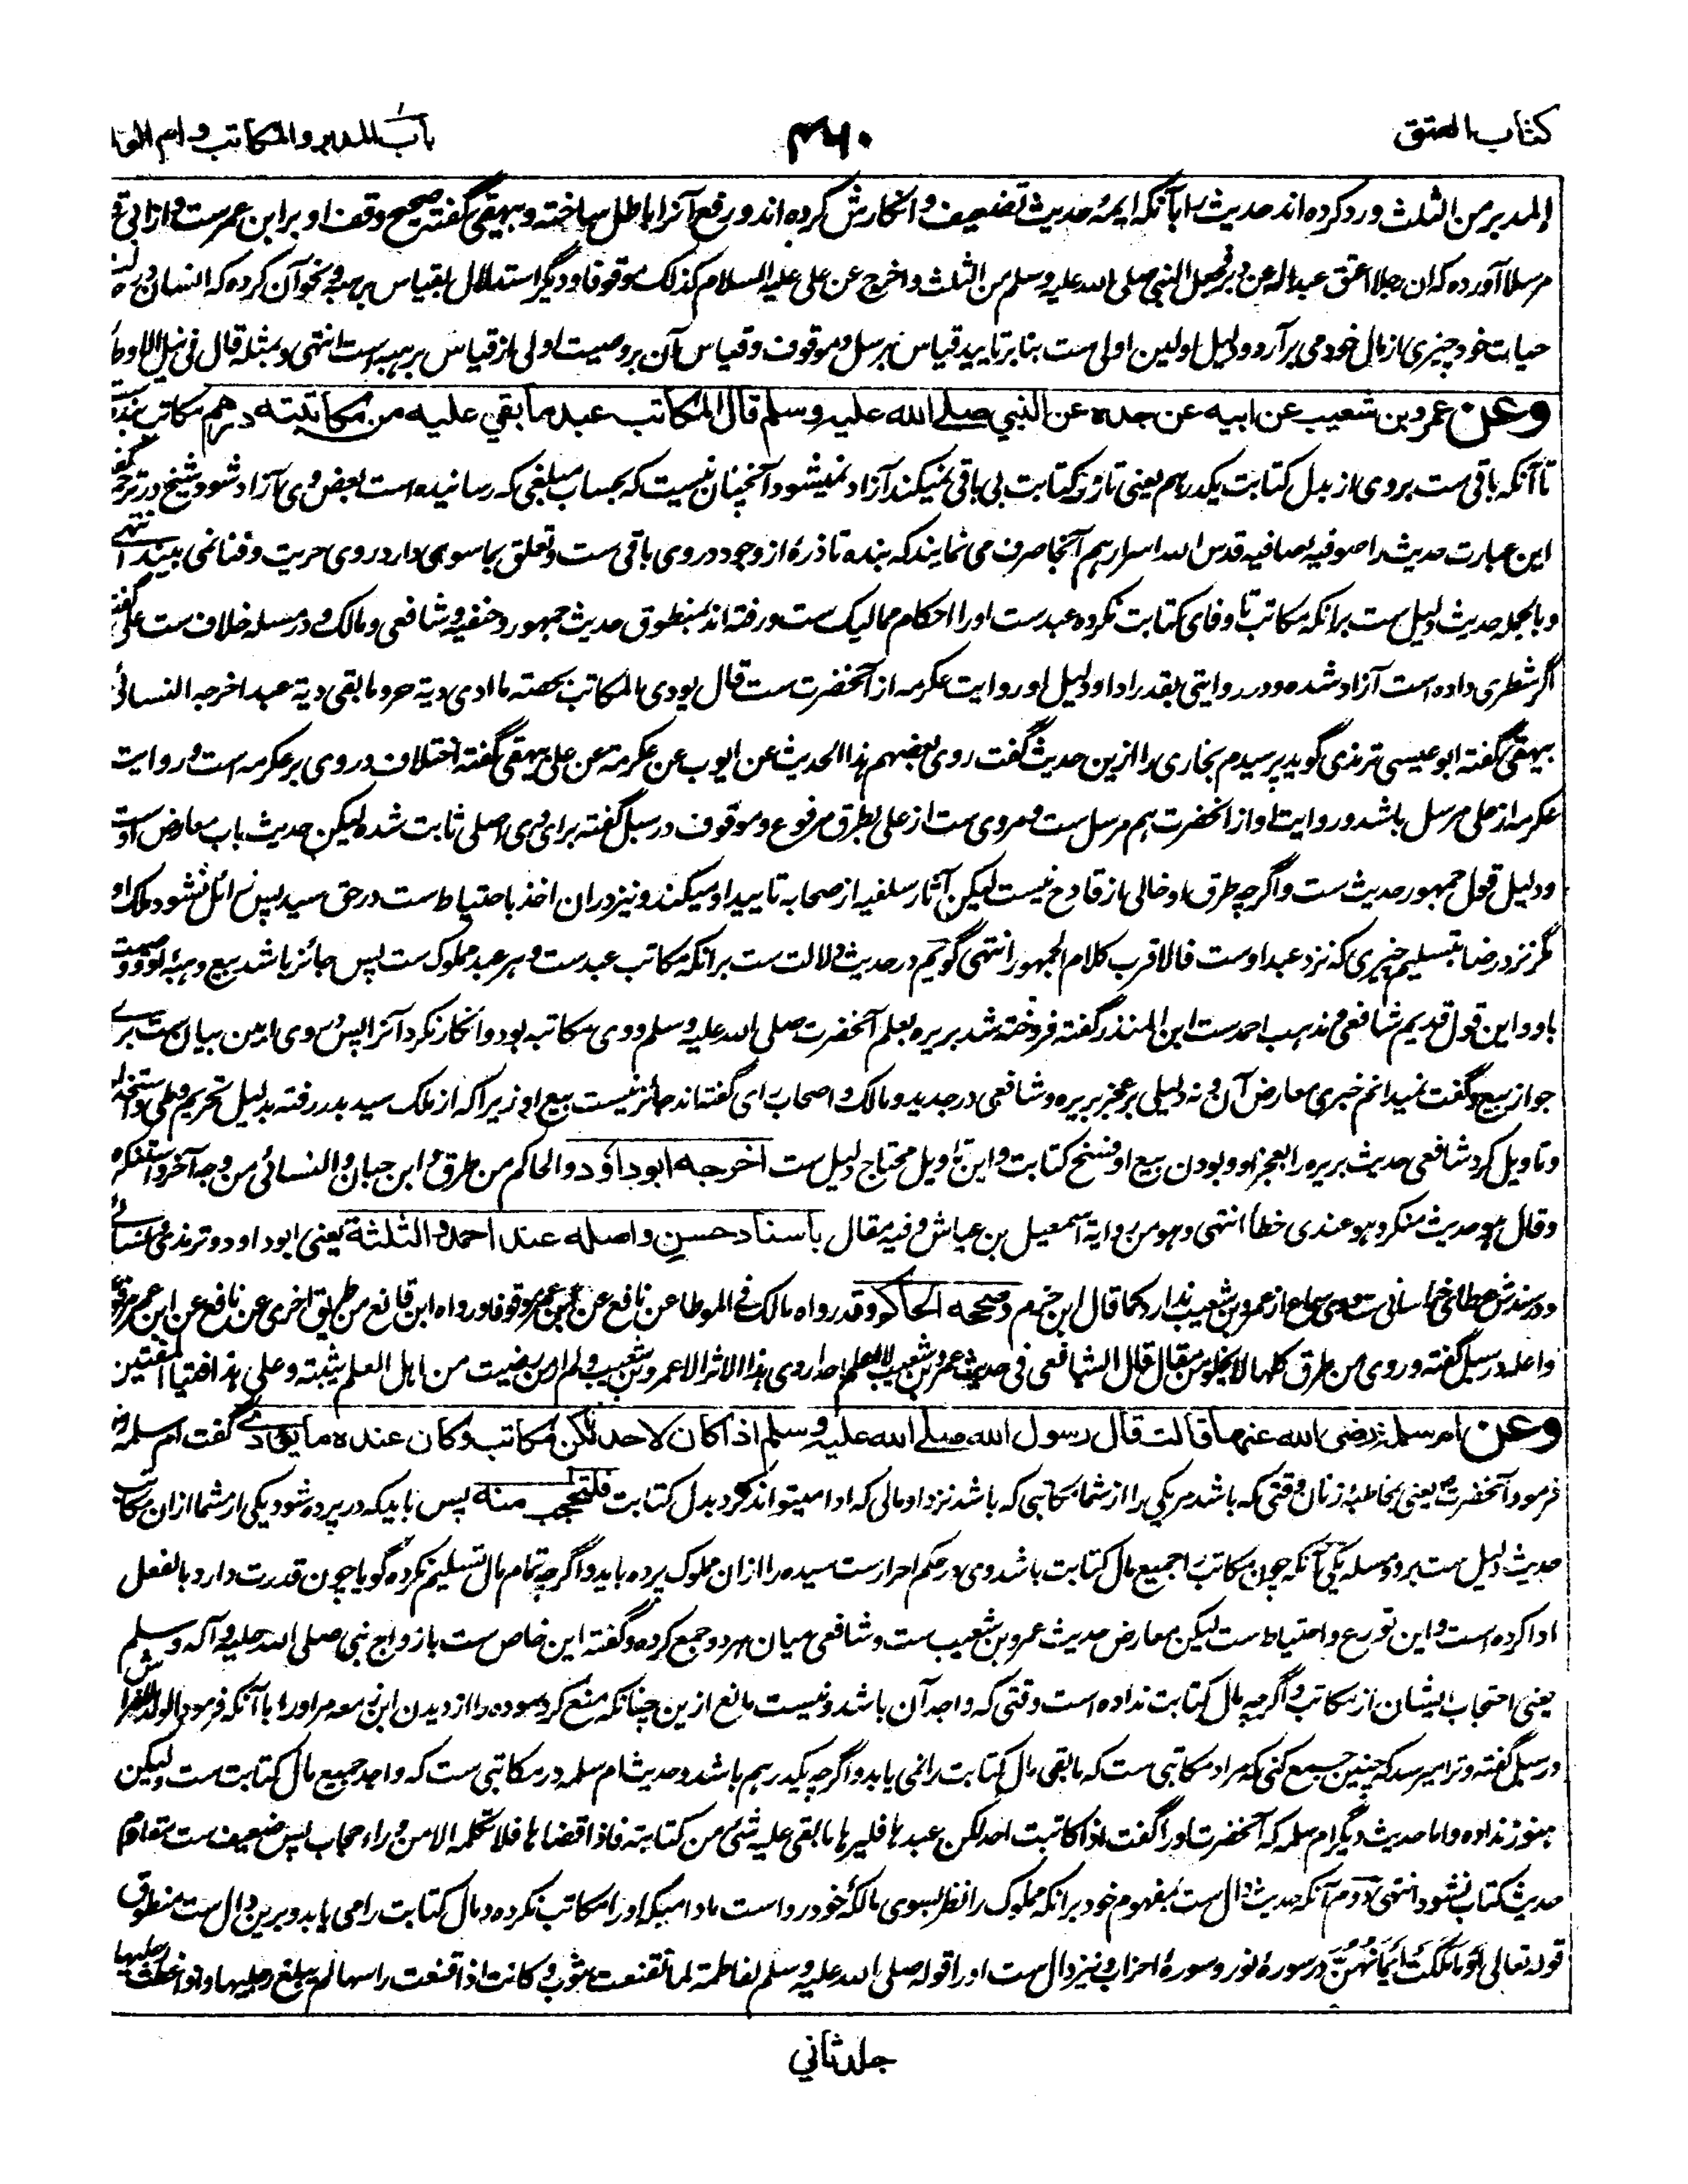 کتاب العتق
۴۶۰
باب المدبر والمکاتب و ام الولد
المدبر من الثلث ورد کرده اند حدیث را باآنکه ایمهٔ حدیث تضعیف و انکارش کرده اند و رفع آنرا باطل ساخته و بیهقی گفته صحیح وقف او بر ابن عمرست و از ابی ق
مرسلا آورده که ان رجلا اعتق عبدا له عن دبر فجعل النبی صلی الله علیه وسلم من الثلث و اخرج عن علی علیه السلام کذلک موقوفا و دیگر استدلال بقیاس بر هبه و نحو آن کرده که انسان در
حیات خود چیزی از مال خود می برآرد و دلیل اولین اولی ست بنا بر تایید قیاس بمرسل و موقوف و قیاس آن بر وصیت اولی از قیاس بر هبه است انتهی و بمثله قال فی نیل الاوطا
وعن عمرو بن شعیب عن ابیه عن جده عن النبي صلے الله علیه وسلم قال المکاتب عبد ما بقي علیه من مکاتبته درهم مکاتب بنده ست
تا آنکه باقی ست بر وی از بدل کتابت یکدرهم یعنی تا زر کتابت بی باقی نمیکند آزاد نمیشود آنچنان نیست که بحساب مبلغی که رسانیده است بعض وی آزاد شود و شیخ در ترجمه گفته
این عبارت حدیث را صوفیه صافیه قدس الله اسرارهم آنجا صرف می نمایند که بنده تا ذرهٔ از وجود در وی باقی ست و تعلق بماسوی دارد روی حریت و فنا نمی بیند انتهے
و بالجمله حدیث دلیل ست برانکه مکاتب تا وفای کتابت نکرده عبدست او را احکام ممالیک ست و رفته اند بمنطوق حدیث جمهور و حنفیه و شافعی و مالک و در مسله خلاف ست علی گفته
اگر شطری داده است آزاد شده و در روایتی بقدر ادا و دلیل او روایت عکرمه از آنحضرت ست قال یودی المکاتب بحصته ما ادی دیة حر و ما بقی دیة عبد اخرجه النسائی
بیهقی گفته ابو عیسی ترمذی گوید پرسیدم بخاری را ازین حدیث گفت روی بعضهم هذا الحدیث عن ایوب عن عکرمة عن علی بیهقی گفته اختلاف در وی بر عکرمه است و روایت
عکرمه از علی مرسل باشد و روایت او از آنحضرت هم مرسل ست و مروی ست از علی بطرق مرفوع و موقوف در سبل گفته برای وی اصلی ثابت شده لیکن حدیث باب معارض اوست
و دلیل قول جمهور حدیث ست و اگرچه طرق او خالی از قادح نیست لیکن آثار سلفیه از صحابه تایید او میکند و نیز دران اخذ باحتیاط ست در حق سید پس زائل نشود ملک او
مگر نزد رضا بتسلیم چیزی که نزد عبد اوست فالاقرب کلام الجمهور انتهی گویم در حدیث دلالت ست برانکه مکاتب عبدست و هر عبد مملوک ست پس جائز باشد بیع و هبهٔ او و وصیت
باو و این قول قدیم شافعی و مذهب احمدست ابن المنذر گفته فروخته شد بریره بعلم آنحضرت صلی الله علیه وسلم و وی مکاتبه بود و انکار نکرد آنرا پس در وی ابین بیان ست برے
جواز بیع و گفت نمیدانم خبری معارض آن و نه دلیلی بر عجز بریره و شافعی در جدید و مالک و اصحاب رای گفته اند جائز نیست بیع او زیراکه از ملک سید بدر رفته بدلیل تحریم وطی و استخدام
و تاویل کرد شافعی حدیث بریره را بعجز او و بودن بیع او فسخ کتابت و این تاویل محتاج دلیل ست اخرجه ابو داؤد و الحاکم من طرق و ابن حبان و النسائی من وجه آخر و استنکره
و قال هو حدیث منکر و هو عندی خطأ انتهی و هو من روایة اسمعیل بن عیاش و فیه مقال باسناد حسن و اصله عند احمد و الثلثة یعنی ابو داود و ترمذی و نسائے
و در سندش عطای خراسانی ست و وی سماع از عمرو بن شعیب ندارد کما قال ابن حزم وصححه الحاکم و قد رواه مالک فی الموطا عن نافع عن ابن عمر موقوفا و رواه ابن قانع من طریق اخری عن نافع عن ابن عمر مرفوعا
و اعله در سبل گفته و روی من طرق کلها لا یخلو من مقال قال الشافعی فی حدیث عمرو بن شعیب لا اعلم احدا روی هذا الا الاثر الا عمرو بن شعیب و لم ار من رضیت من اهل العلم یثبته و علی هذا فتیا المفتین
وعن ام سلمة رضی الله عنها قالت قال رسول الله صلے الله علیه وسلم اذا کان لاحدٮکن مکاتب و کان عنده ما یؤدے گفت ام سلمه
فرمود آنحضرت ص یعنی بمخاطبهٔ زنان وقتی که باشد مر یکی را از شما مکاتبی که باشد نزد او مالی که ادا میتواند کرد بدل کتابت فلتحتجب منه پس باید که در پرده شود یکی از شما ازان مکاتب
حدیث دلیل ست بر دو مسله یکی آنکه چون مکاتب را جمیع مال کتابت باشد وی در حکم احرارست سیده را ازان مملوک پرده باید و اگرچه تمام مال تسلیم نکرده گویا چون قدرت دارد بالفعل
ادا کرده است و این تورع و احتیاط ست لیکن معارض حدیث عمرو بن شعیب ست و شافعی میان هر دو جمع کرده و گفته این خاص ست بازواج نبی صلی الله علیه و آله وسلم
یعنی احتجاب ایشان از مکاتب و اگرچه مال کتابت نداده است وقتی که واجد آن باشد و نیست مانع ازین چنانکه منع کرد سوده را از دیدن ابن زمعه مر او را باآنکه فرمود الولد للفراش
در سبل گفته و ترا میرسد که چنین جمع کنی که مراد مکاتبی ست که مابقی مال کتابت را نمی یابد و اگرچه یکدرهم باشد و حدیث ام سلمه در مکاتبی ست که واجد جمیع مال کتابت ست و لیکن
هنوز نداده و اما حدیث دیگر ام سلمه که آنحضرت او را گفت اذا کاتبت احدکن عبدها فلیرها ما بقی علیه شیٔ من کتابته فاذا قضاها فلا تکلمه الا من وراء حجاب پس ضعیف ست مقاوم
حدیث کتاب نشود انتهی دوم آنکه حدیث دال ست بمفهوم خود برانکه مملوک را نظر بسوی مالکهٔ خود رواست مادامیکه او را مکاتب نکرده و مال کتابت را می یابد و برین دال ست منطوق
قوله تعالی أَوْ مَا مَلَكَتْ أَيْمَانُهُنَّ در سورهٔ نور و سورهٔ احزاب و نیز دال ست او را قوله صلی الله علیه وسلم لفاطمة لما تقنعت بثوب و کانت اذا قنعت راسها لم یبلغ رجلیها و اذا غطت رجلیها
جلد ثاني